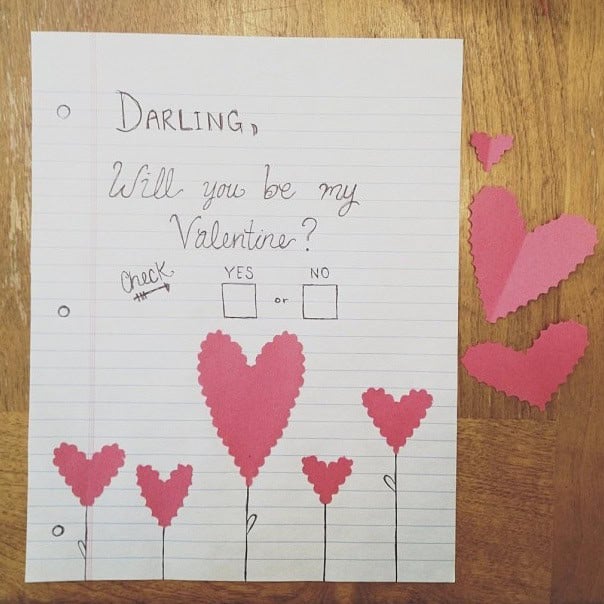 DARLING,
Will you be my
Valentine?
Check YES or NO